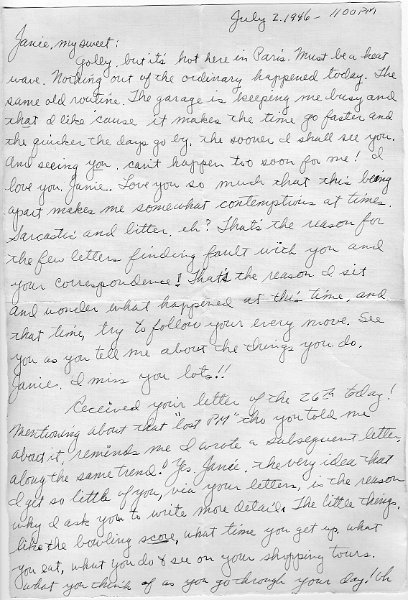 July 2, 1946 - 11:00 PM
Janie, my sweet:
Goley, but it's hot here in Paris. Must be a heat
wave. Nothing out of the ordinary happened today. The
same old routine. The garage is keeping me busy and
that I like 'cause it makes the time go faster and
the quicker the days go by, the sooner I shall see you.
And seeing you can't happen too soon for me! I
love you, Janie. Love you so much that this being
apart makes me somewhat contemptious at times.
Sarcastic and bitter, eh? That's the reason for
the few letters finding fault with you and
your correspondence! That's the reason I sit
and wonder what happened at this time, and
that time, try to follow your every move. See
you as you tell me about the things you do.
Janie, I miss you lots!!
Received your letter of the 26th today!
Mentioning about that "lost PM" tho you told me
about it, reminds me I wrote a subsequent letter
along the same trend. Yes, Janie, the very idea that
I get so little of you, via your letters, is the reason
why I ask you to write more details. The little things,
like the bowling score, what time you get up, what
you eat, what you do & see on your shopping tours.
What you think of as you go through your day! Oh